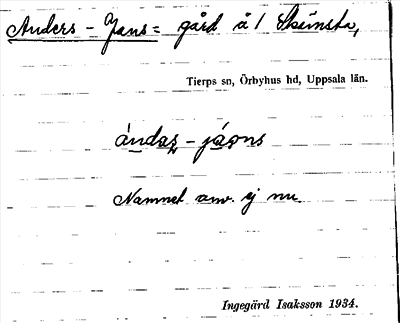 Anders-Jans= gård å 1 Skeinsta,
Tierps sn, Örbyhus hd, Uppsala län.
ándaʂ - jáɷns
Namnet anv. ej nu.
Ingegärd Isaksson 1934.